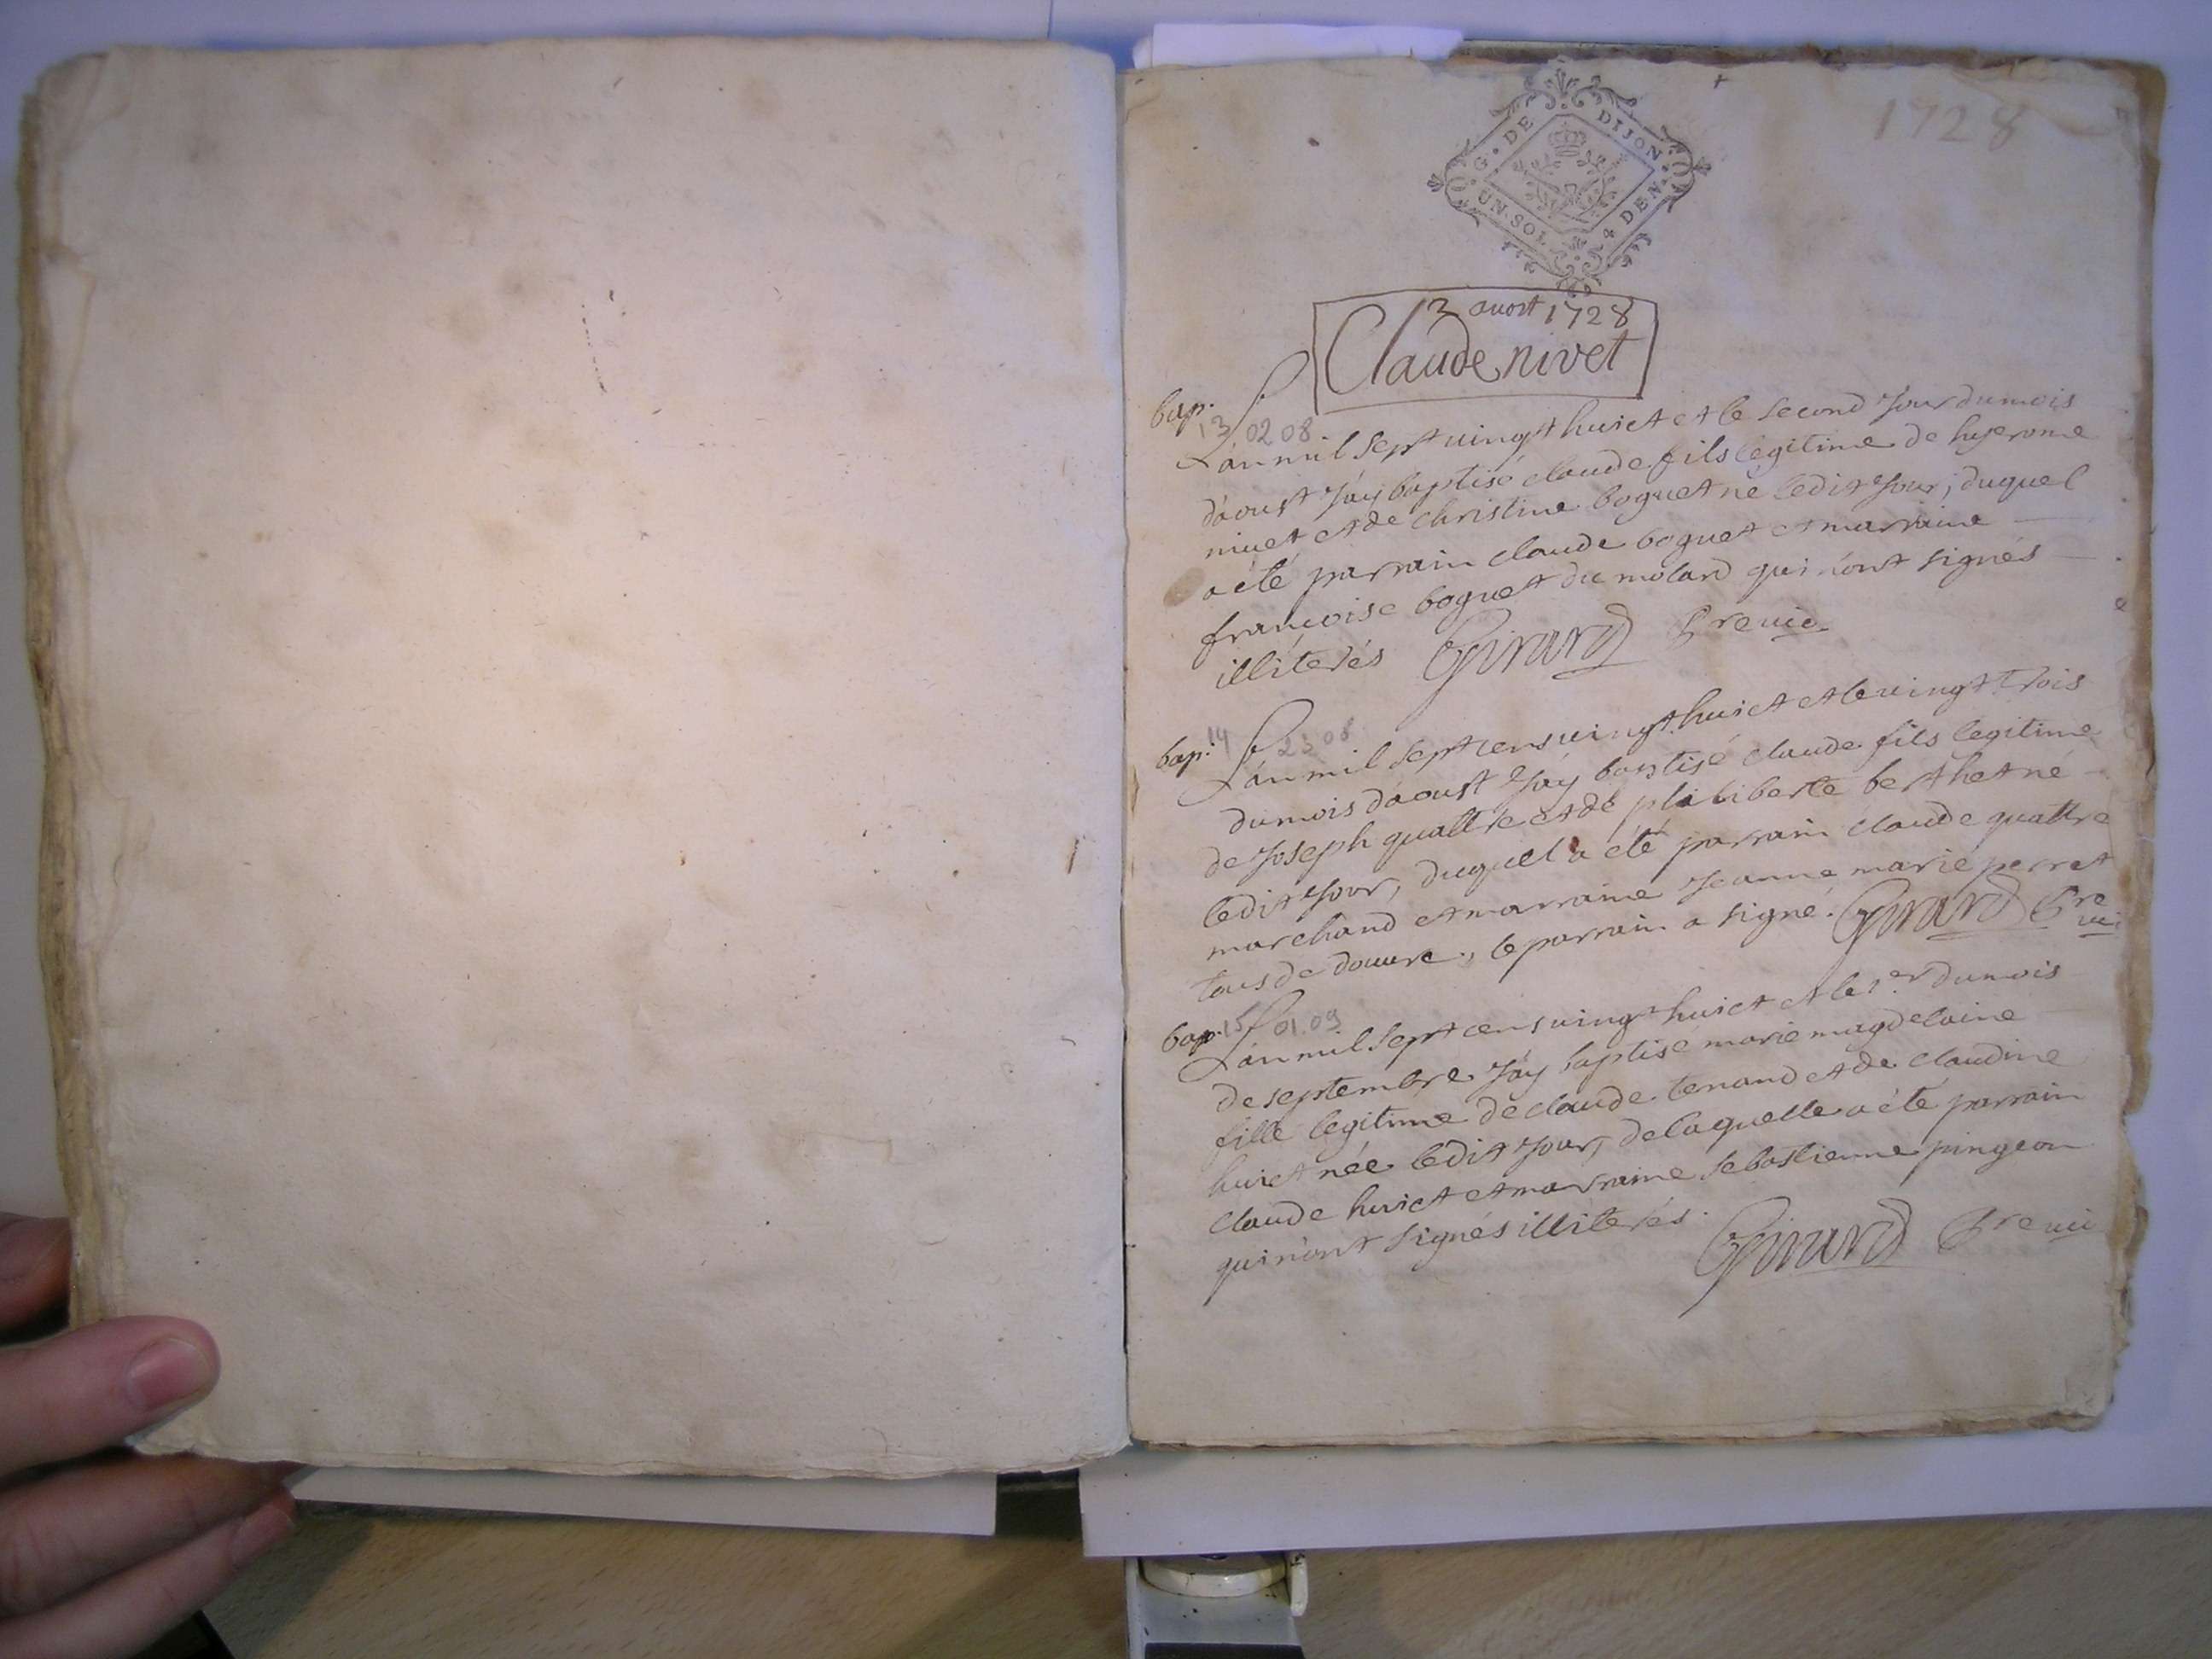 1728
G. DE DIJON
UN. SOL 4 DEN.
2 auost 1728
Claude nivet
bap.
13 02 08
L'an mil sept vingt huict et le second jour du mois
d'aoust j'ay baptisé claude fils legitime de hyerome
nivet et de christine boguet né ledit jour, duquel
a été parrain claude boguet et marraine
francoise boguet du molard qui n'ont signés
illiterés Girard Pre vic.
bap. 14 23 08
L'an mil sept cens vingt huict et le vingt trois
du mois d'aoust j'ay baptisé claude fils legitime
de joseph quattre et de philiberte berthet né
ledit jour, duquel a été parrain claude quattre
marchand et marraine jeanne marie perret
tous de douvre, le parrain a signé. Girard Pre
vic
bap. 15 01.09
L'an mil sept cens vingt huict et le 1.er du mois
de septembre j'ay baptisé marie magdelaine
fille legitime de claude tenand et de claudine
huict née ledit jour, de laquelle a été parrain
claude huict et marraine sebastienne pingeon
qui n'ont signés illiterés. Girard Pre vic